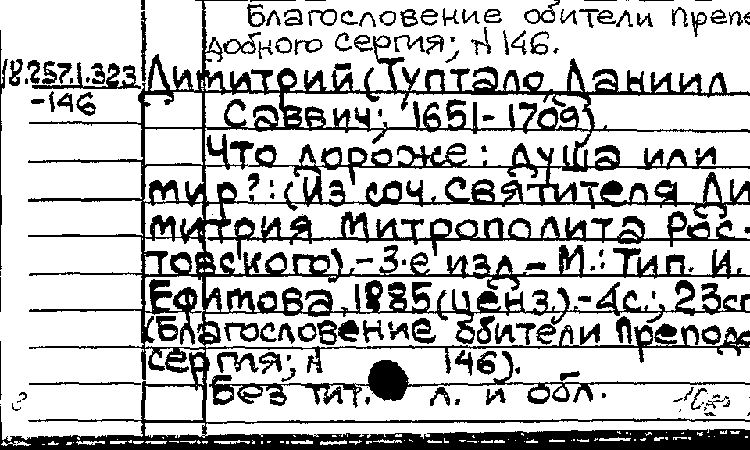 Благословение обители препо
добного сергия; N 146.
18.257.1.323 Димитрий (Туптало, Даниил
-146 Саввич; 1651-1709).
Что дороже: душа или
мир?: (Из соч. святителя Ди
митрия митрополита Рос-
товского). - 3-е изд. - М.: Тип. И.
Ефимова, 1885 (ценз.). - 4с.; 23см
(Благословение обители Препод
сергия; N 146).
Без тит. л. и обл.